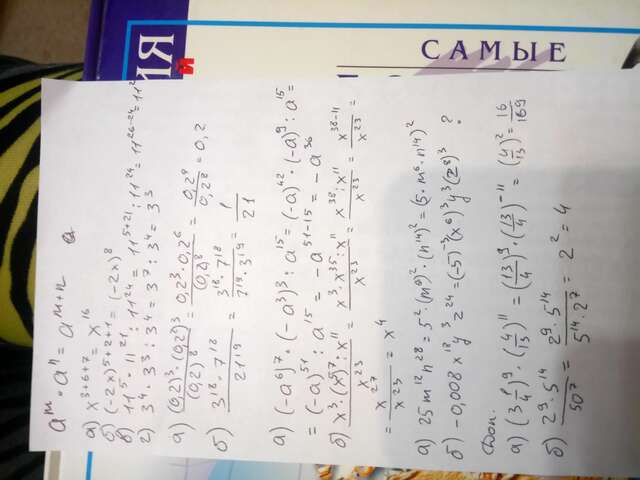 aᵐ · aⁿ = aᵐ⁺ⁿ a
а) x³⁺⁶⁺⁷ = x¹⁶
б) (-2x)⁵⁺²⁺¹ = (-2x)⁸
в) 11⁵ · 11²¹ : 11²⁴ = 11⁵⁺²¹ : 11²⁴ = 11²⁶⁻²⁴ = 11²
г) 3⁴ · 3³ : 3⁴ = 3⁷ : 3⁴ = 3³
а) (0,2)³ · (0,2²)³ / (0,2)⁸ = 0,2³ · 0,2⁶ / (0,2)⁸ = 0,2⁹ / 0,2⁸ = 0,2
б) 3¹⁸ · 7¹⁸ / 21¹⁹ = 3¹⁸ · 7¹⁸ / 7¹⁹ · 3¹⁹ = 1 / 21
а) (-a⁶)⁷ · (-a³)³ : a¹⁵ = (-a)⁴² · (-a)⁹ : a¹⁵ =
= (-a)⁵¹ : a¹⁵ = -a⁵¹⁻¹⁵ = -a³⁶
б) x³ · (x⁵)⁷ : x¹¹ / x²³ = x³ · x³⁵ : x¹¹ / x²³ = x³⁸ : x¹¹ / x²³ = x³⁸⁻¹¹ / x²³ =
= x²⁷ / x²³ = x⁴
а) 25m¹²n²⁸ = 5² · (m⁶)² · (n¹⁴)² = (5 · m⁶ · n¹⁴)²
б) -0,008x¹⁸y³z²⁴ = (-5)⁻³(x⁶)³y³(z⁸)³ ?
Доп.
а) (3 1/4)⁹ · (4/13)¹¹ = (13/4)⁹ · (13/4)⁻¹¹ = (4/13)² = 16/169
б) 2⁹ · 5¹⁴ / 50⁷ = 2⁹ · 5¹⁴ / 5¹⁴ · 2⁷ = 2² = 4
САМЫЕ